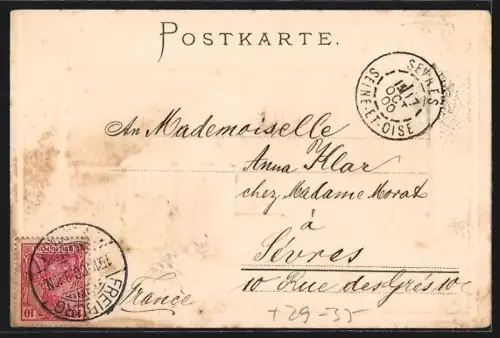 POSTKARTE.
SEVRES
17
OCT
00
SEINE-ET-OISE
An Mademoiselle
Anna Klar
chez Madame Morat
à
Sèvres
10 Rue des Grés 10
France
FREIBURG
10
+29-35